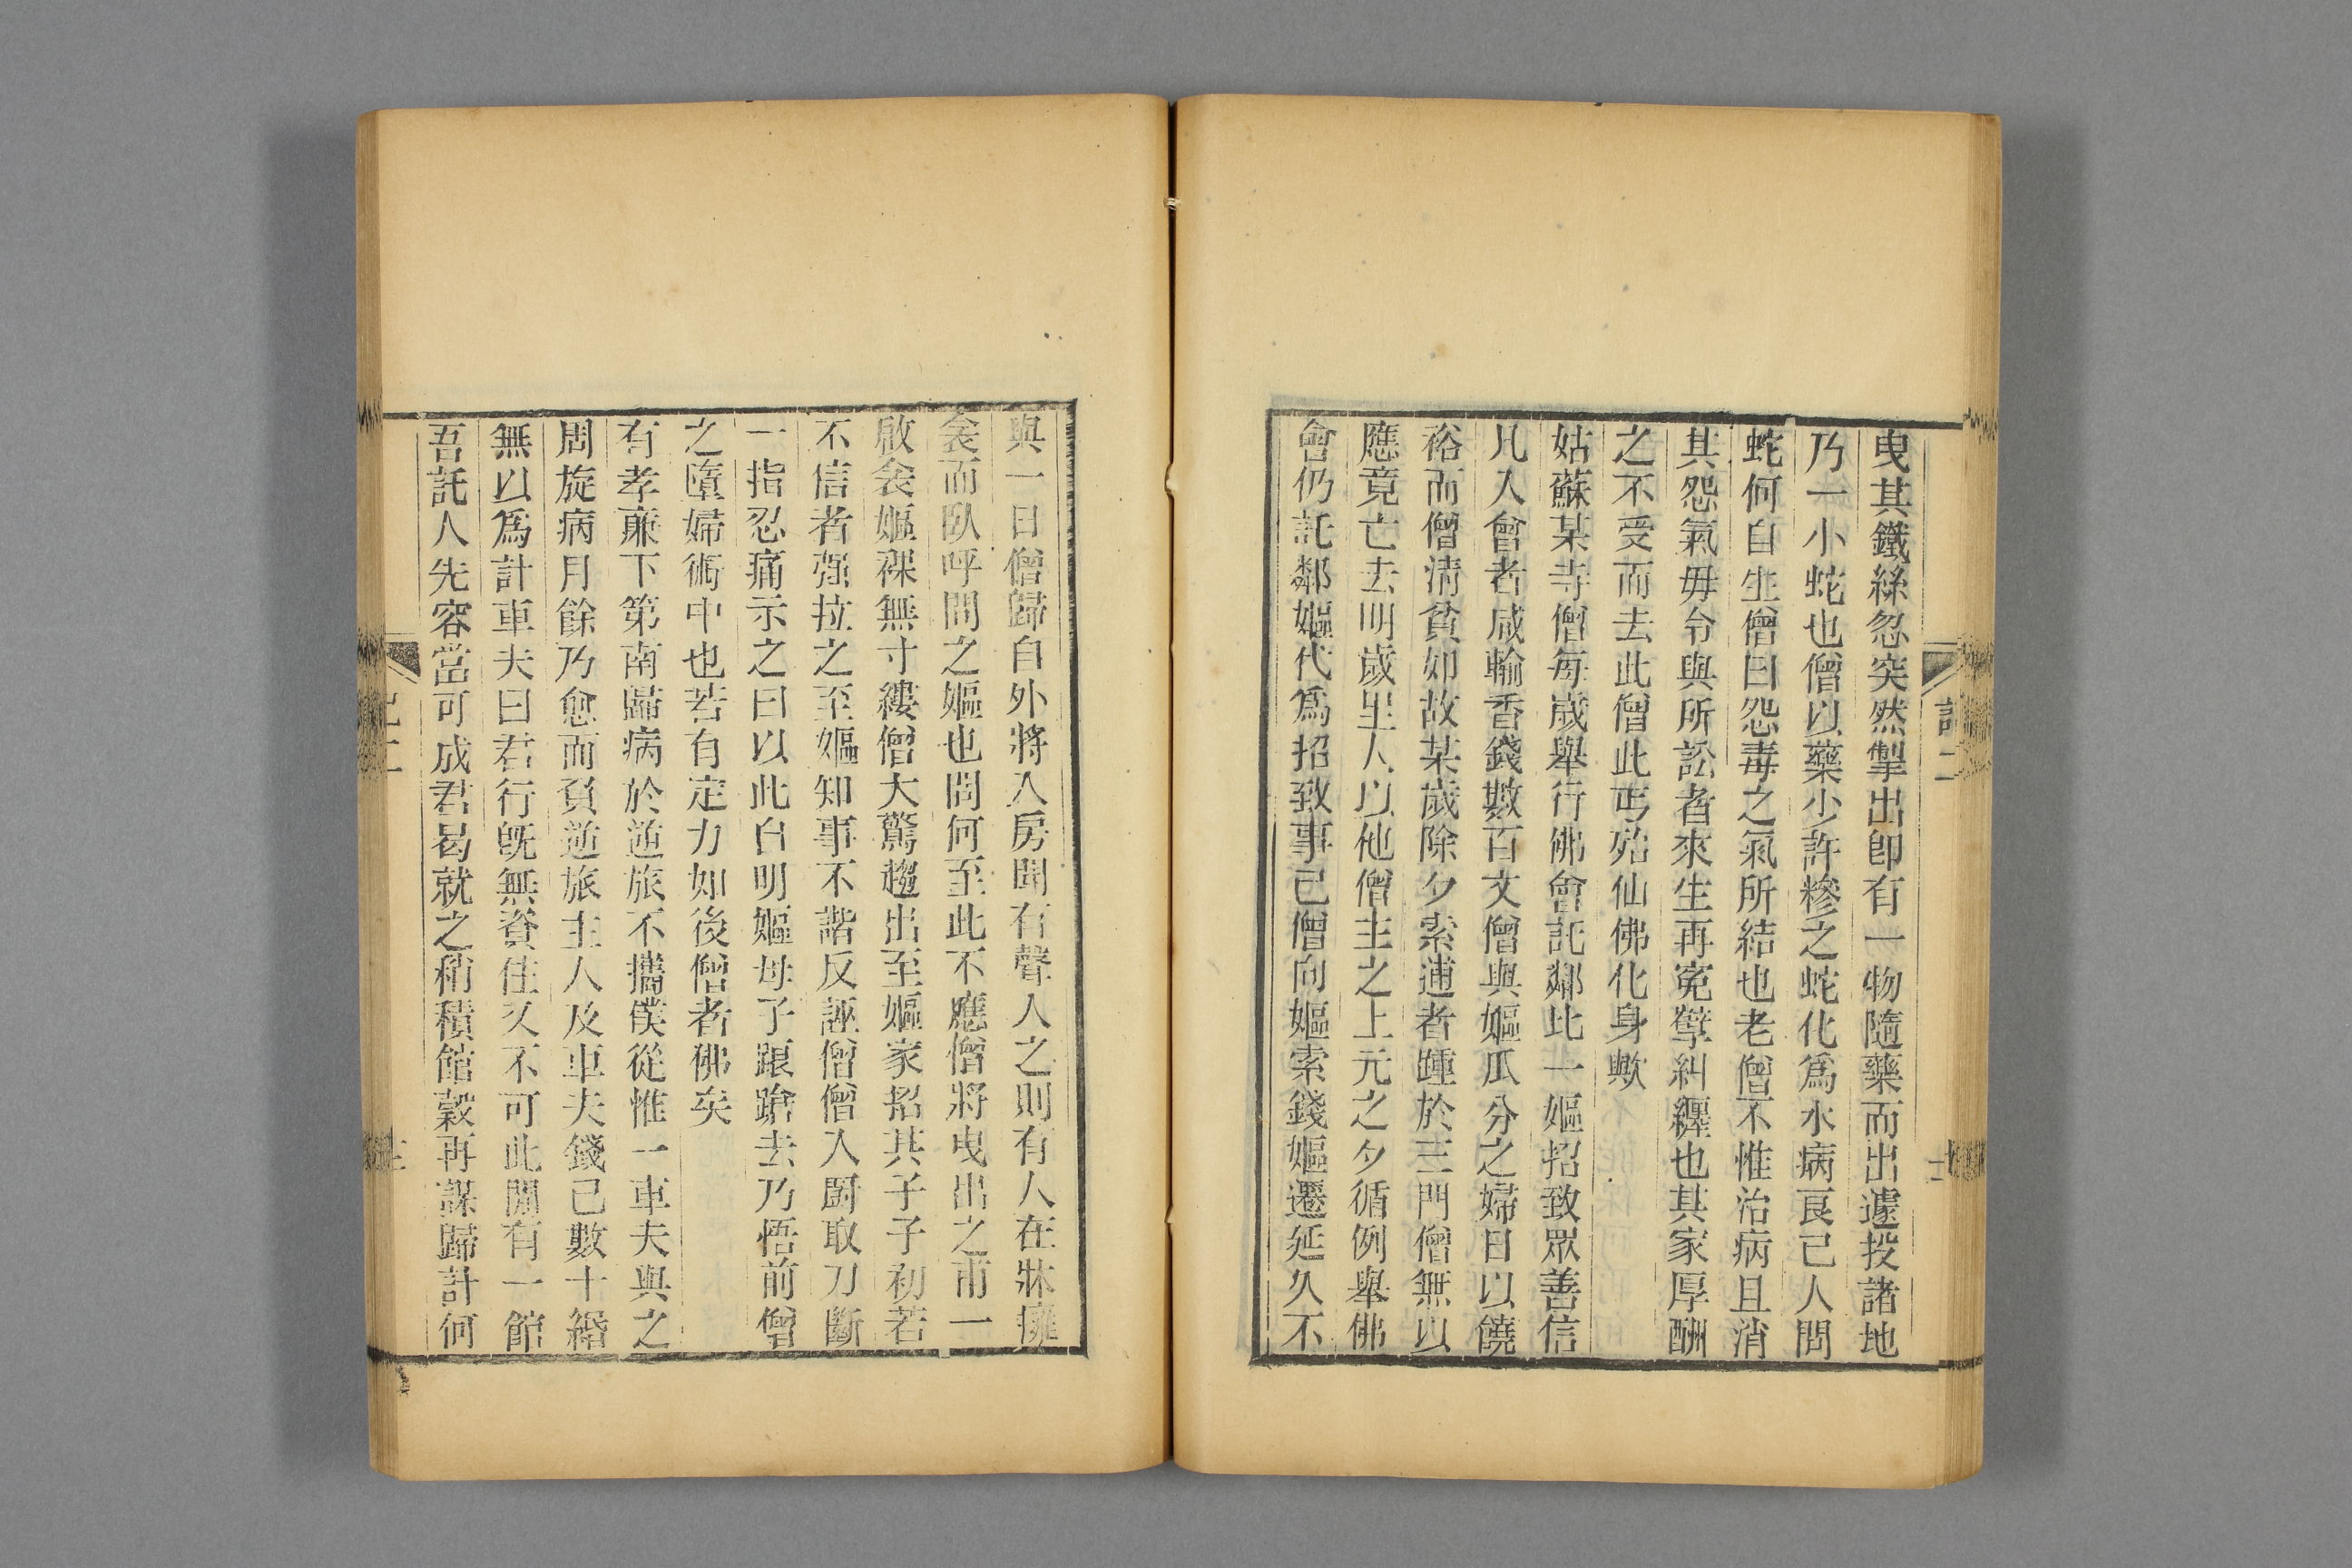 曳其鐵絲忽突然掣出卽有一物隨藥而出遽投諸地
乃一小蛇也僧以藥少許糝之蛇化爲水病良已人問
蛇何自生僧曰怨毒之氣所結也老僧不惟治病且消
其怨氣毋令與所訟者來生再寃孽糾纒也其家厚酬
之不受而去此僧此丐殆仙佛化身歟
姑蘇某寺僧每歲舉行佛會託鄰比一嫗招致眾善信
凡入會者咸輸香錢數百文僧與嫗瓜分之婦日以饒
裕而僧清貧如故某歲除夕索逋者踵於三門僧無以
應竟亡去明歲里人以他僧主之上元之夕循例舉佛
會仍託鄰嫗代爲招致事已僧向嫗索錢嫗遷延久不
與一日僧歸自外將入房聞有聲人之則有人在牀擁
衾而臥呼問之嫗也問何至此不應僧將曳出之甫一
啟衾嫗裸無寸縷僧大驚趨出至嫗家招其子子初若
不信者强拉之至嫗知事不諧反誣僧僧入厨取刀斷
一指忍痛示之曰以此自明嫗母子踉蹌去乃悟前僧
之墮婦術中也若有定力如後僧者佛矣
有孝亷下第南歸病於逆旅不攜僕從惟一車夫與之
周旋病月餘乃愈而負逆旅主人及車夫錢已數十緡
無以爲計車夫曰君行旣無資住久不可此閒有一館
吾託人先容當可成君曷就之稍積館穀再謀歸計何
二